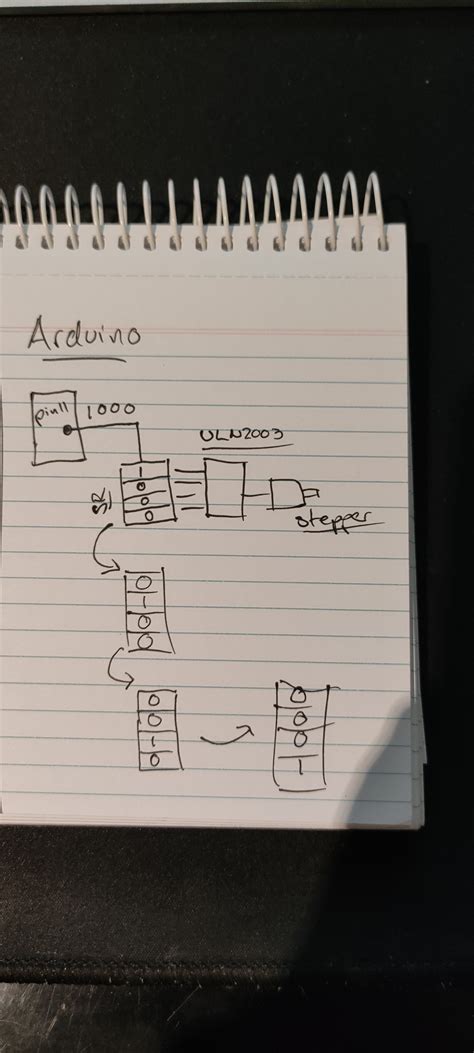 Arduino
pin11
1000
ULN2003
SR
1
0
0
0
stepper
0
1
0
0
0
0
1
0
0
0
0
1